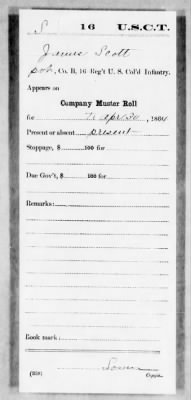 S 16 U.S.C.T.
James Scott
pvt, Co. B, 16 Reg't U. S. Col'd Infantry.
Appears on
Company Muster Roll
for To Apr 30, 1864
Present or absent present
Stoppage, $ 100 for
Due Gov't, $ 100 for
Remarks:
Book mark:
(358)
Copyist.